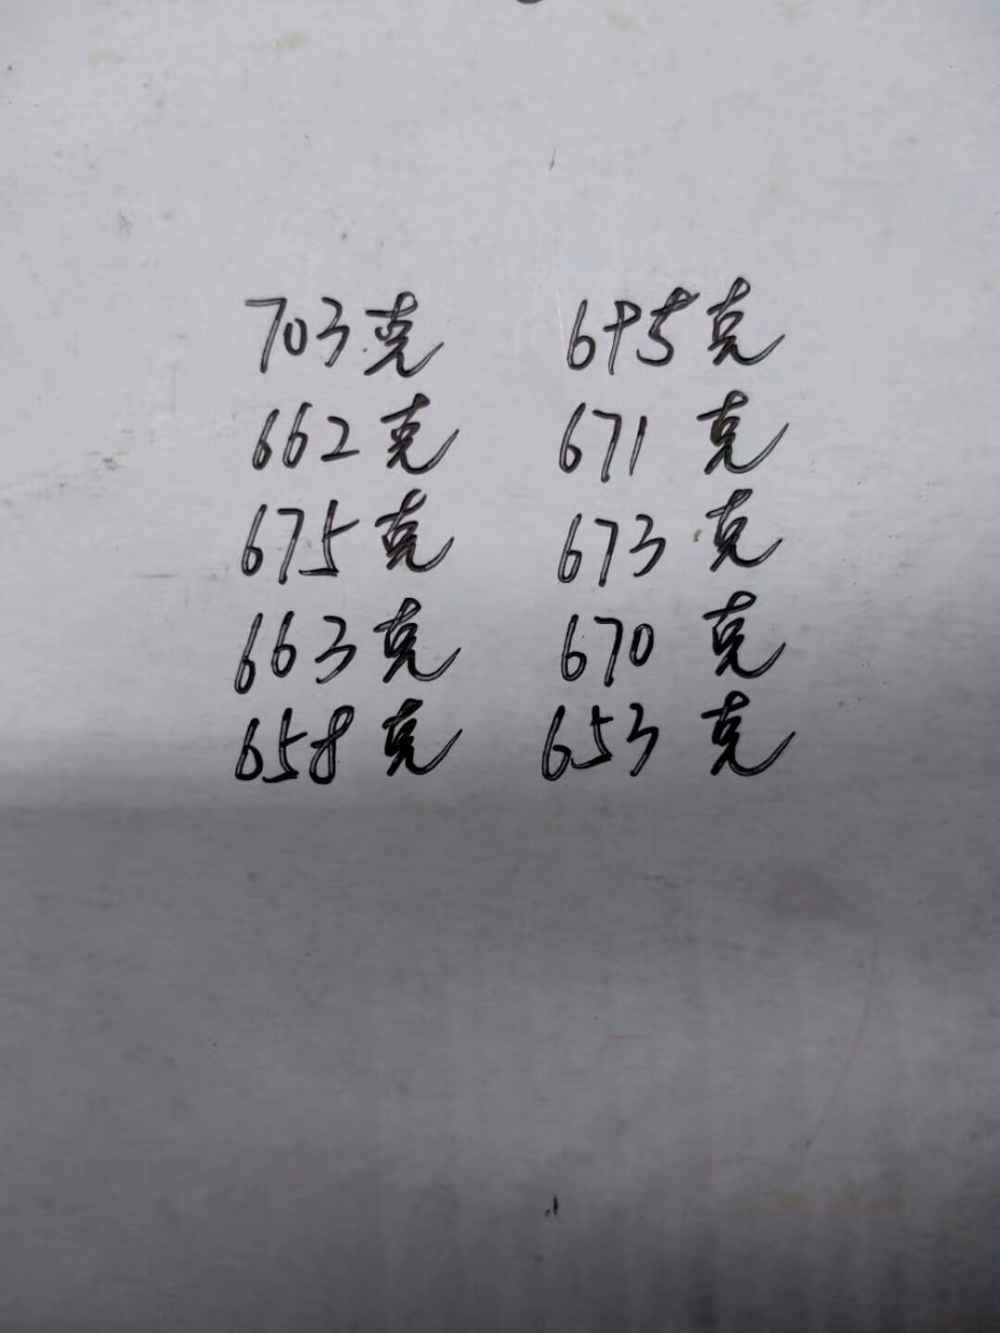 703克 695克
662克 671克
675克 673克
663克 670克
658克 653克